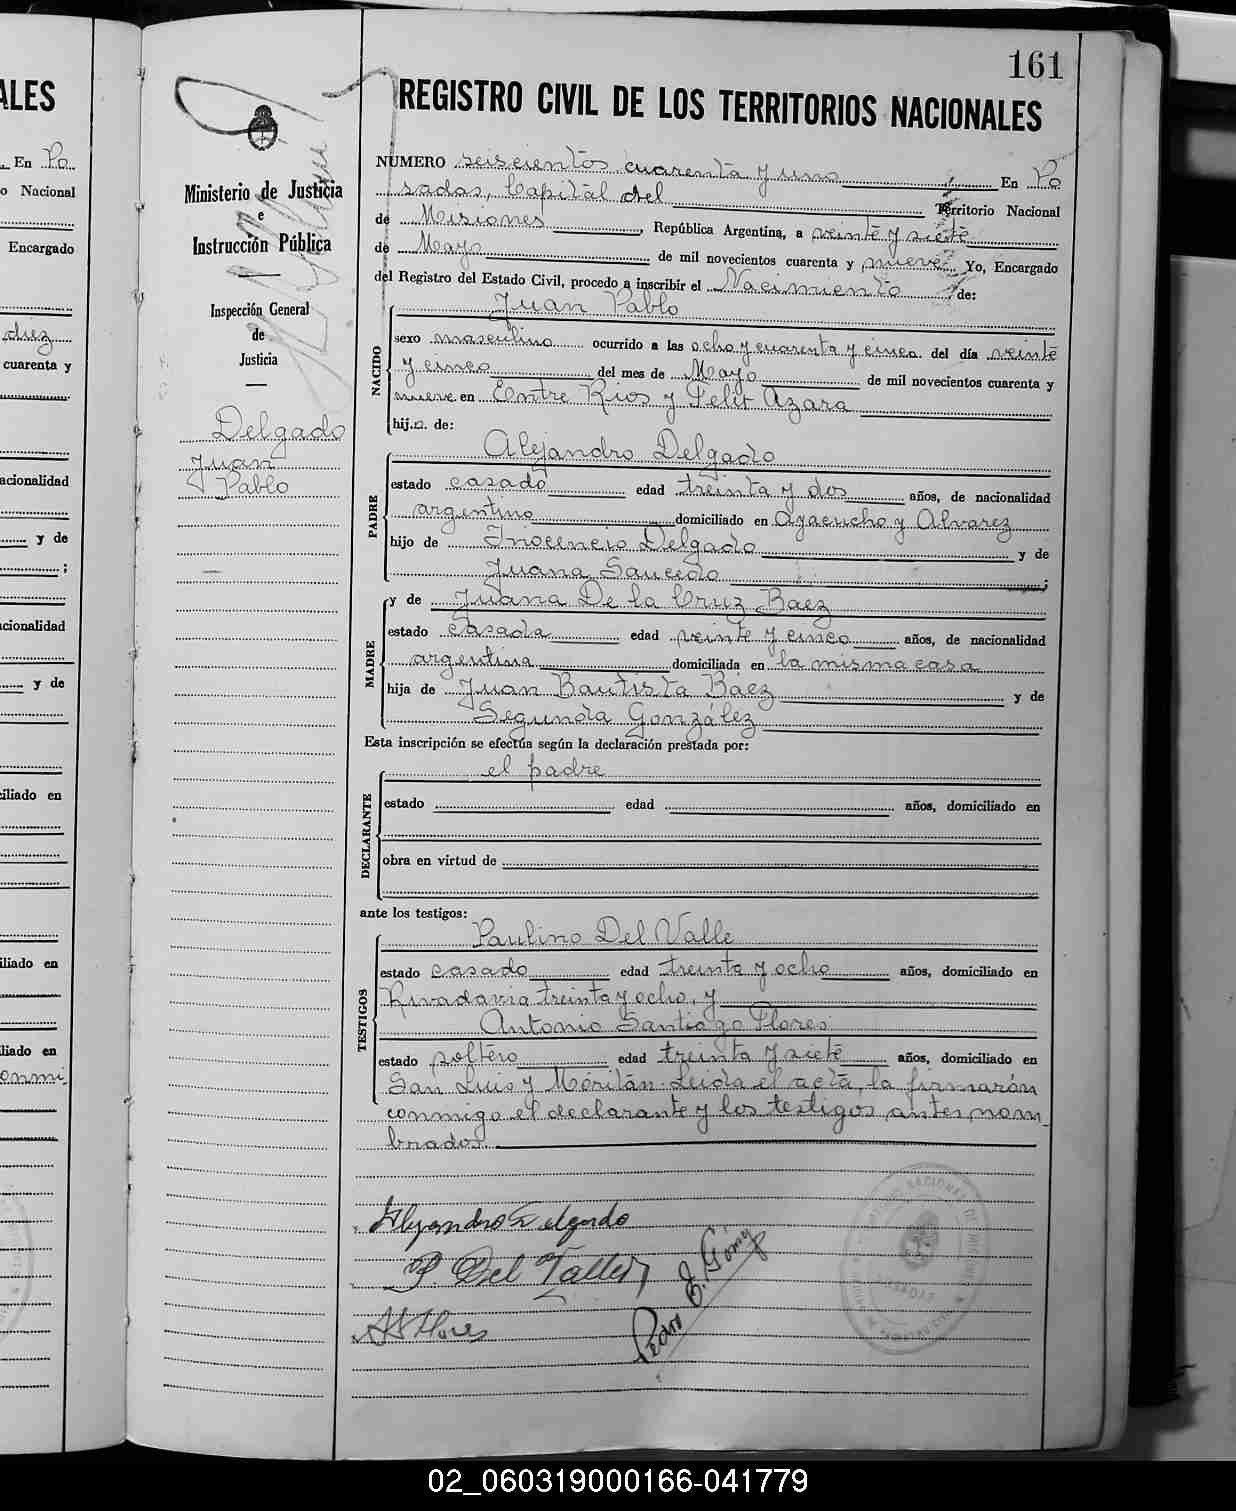 161
REGISTRO CIVIL DE LOS TERRITORIOS NACIONALES
Ministerio de Justicia
e
Instrucción Pública
Inspección General
de
Justicia
Delgado
Juan
Pablo
NUMERO seiscientos cuarenta y uno En Po
sadas, Capital del Territorio Nacional
de Misiones, República Argentina, a veinte y siete
de Mayo de mil novecientos cuarenta y nueve Yo, Encargado
del Registro del Estado Civil, procedo a inscribir el Nacimiento de:
Juan Pablo
NACIDO
sexo masculino ocurrido a las ocho y cuarenta y cinco del día veinte
y cinco del mes de Mayo de mil novecientos cuarenta y
nueve en Entre Rios y Felix Azara
hij.o. de:
Alejandro Delgado
PADRE
estado casado edad treinta y dos años, de nacionalidad
argentino domiciliado en Ayacucho y Alvarez
hijo de Inocencio Delgado y de
Juana Saucedo ;
MADRE
y de Juana De la Cruz Baez
estado casada edad veinte y cinco años, de nacionalidad
argentina domiciliada en la misma casa
hija de Juan Bautista Báez y de
Segunda González
Esta inscripción se efectúa según la declaración prestada por:
el padre
DECLARANTE
estado edad años, domiciliado en
obra en virtud de
ante los testigos:
Paulino Del Valle
TESTIGOS
estado casado edad treinta y ocho años, domiciliado en
Rivadavia treinta y ocho, y
Antonio Santiago Flores
estado soltero edad treinta y siete años, domiciliado en
San Luis y Moritán. Leida el acta, la firmarón
conmigo el declarante y los testigos antes nom
brados.
Alejandro Delgado
P. Del Valle
A S Flores
Pedro E. Gómez
ALES
En Po
o Nacional
Encargado
diez
cuarenta y
acionalidad
y de
;
cionalidad
y de
ciliado en
iliado en
liado en
onmi
02_060319000166-041779